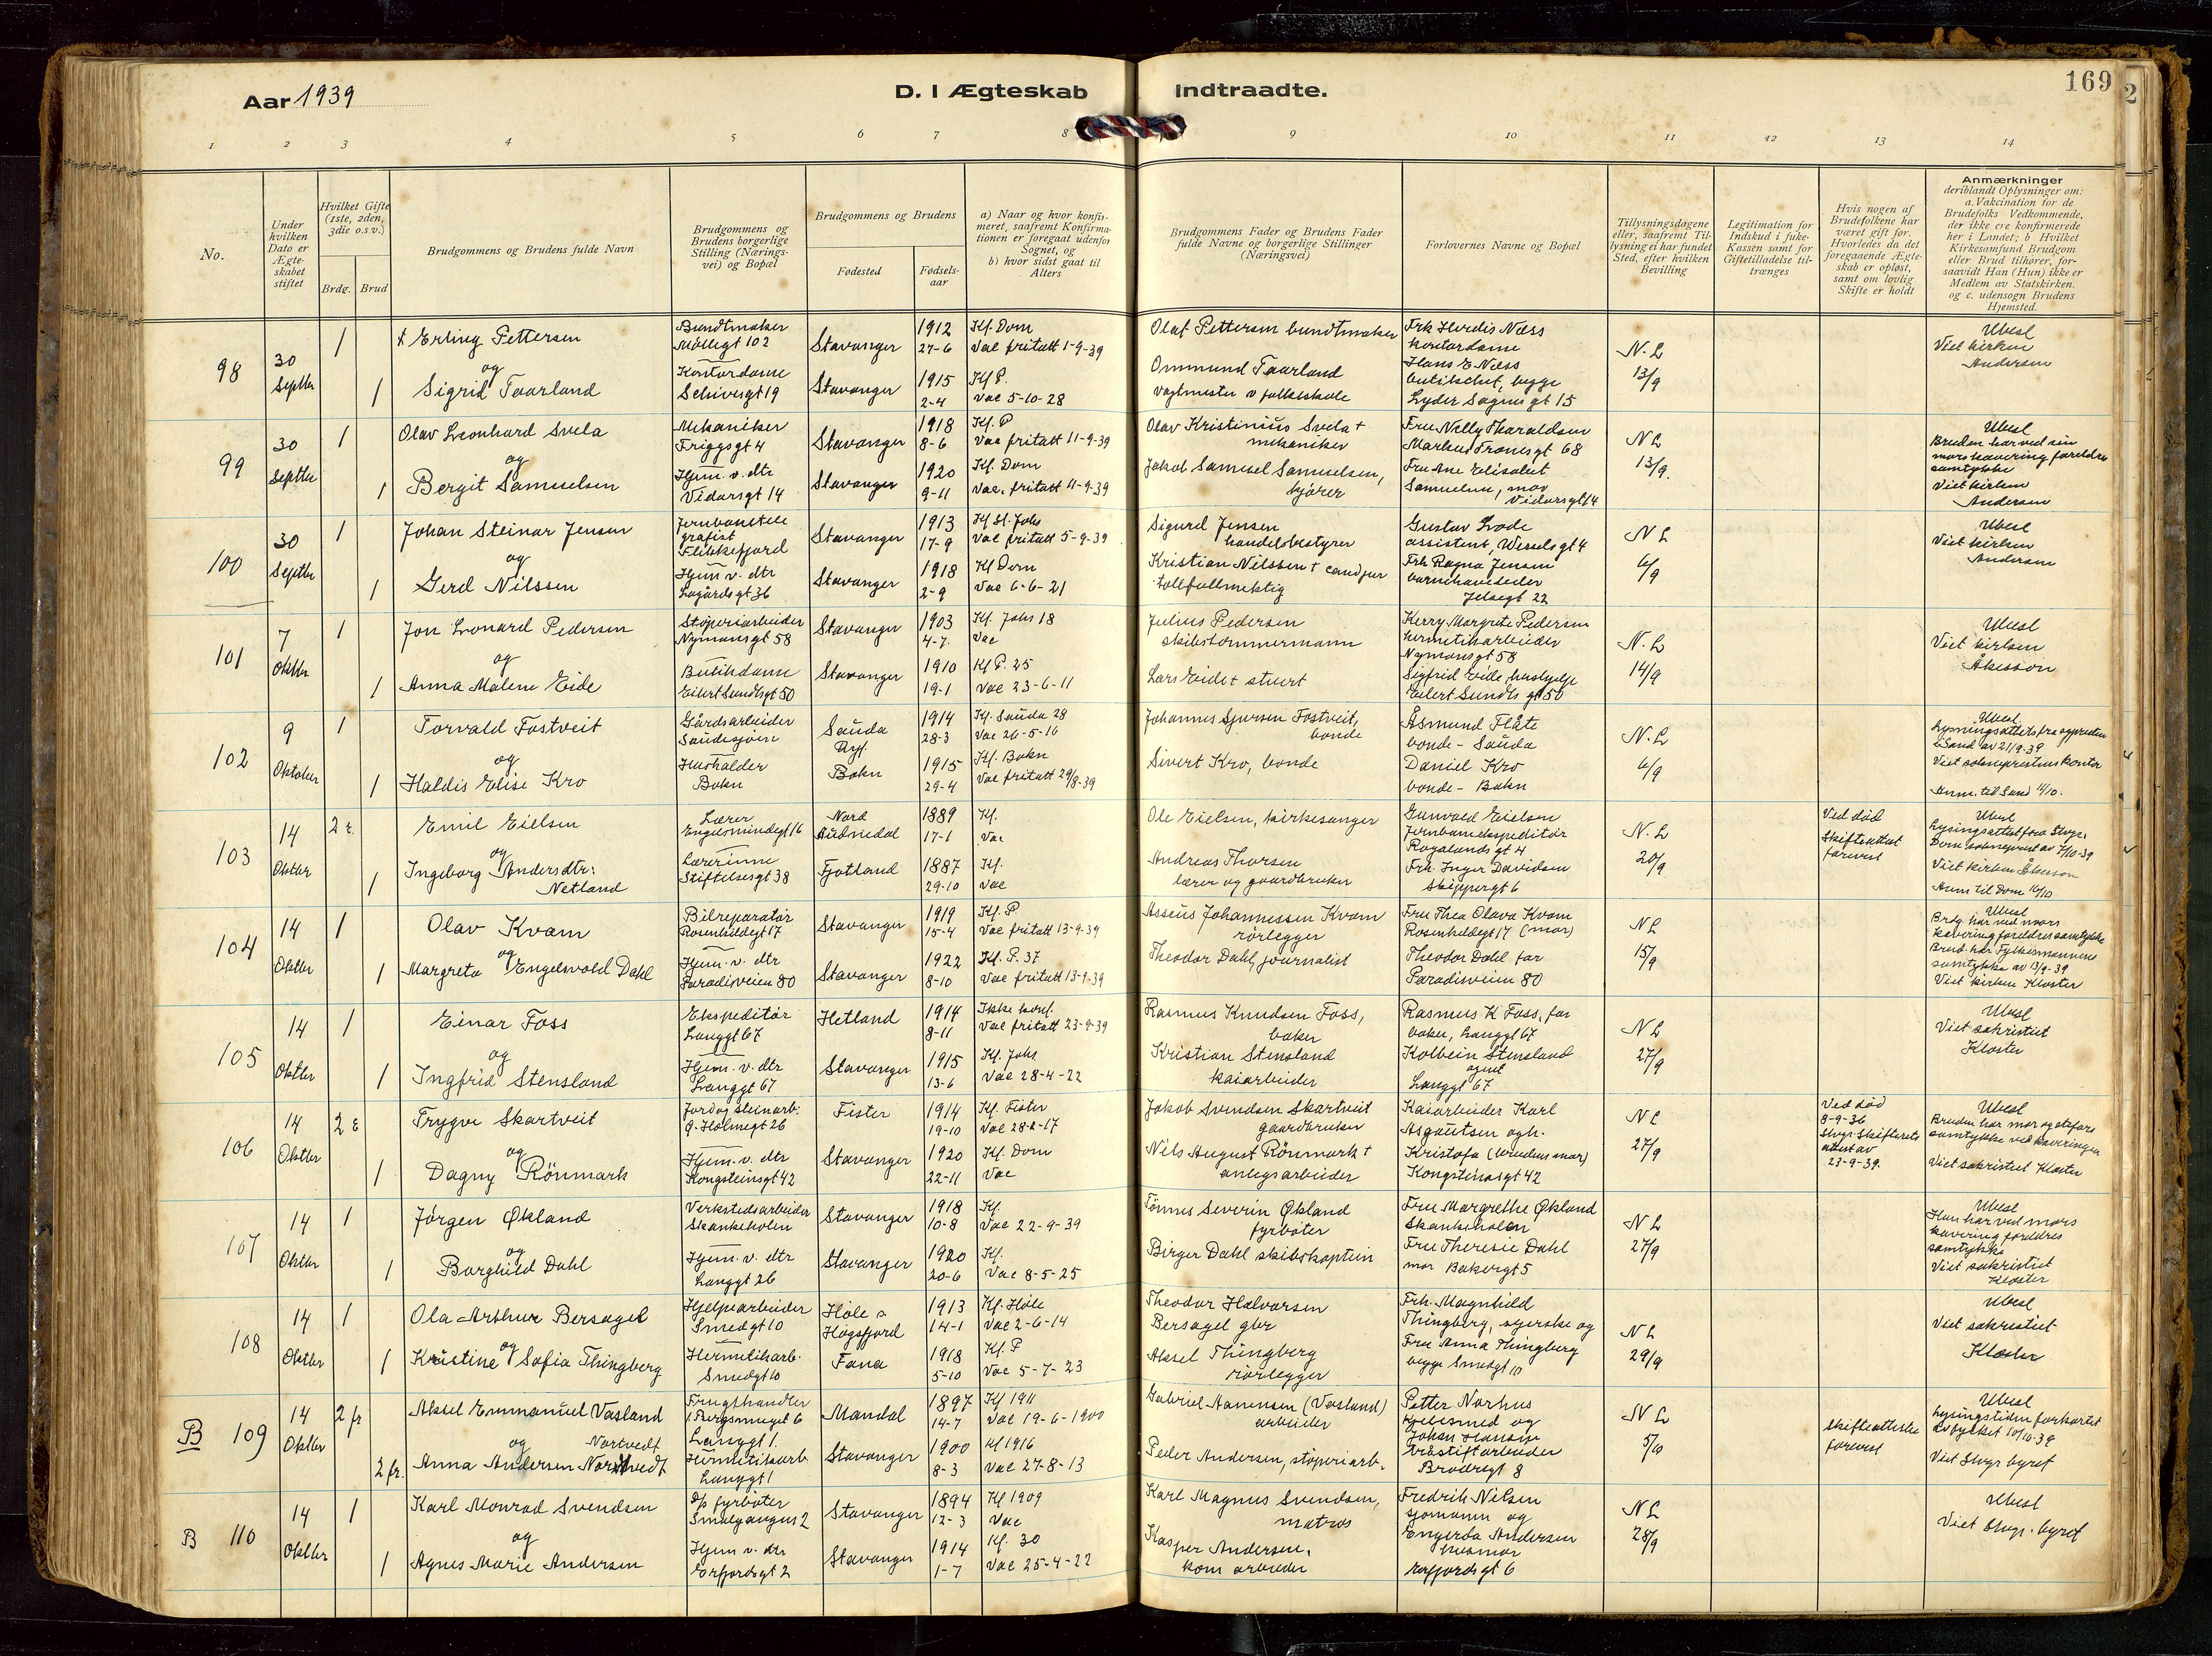 Aar 1939
D. I Ægteskab Indtraadte.
169
2
1 2 3 4 5 6 7 8 9 10 11 12 13 14
No.
Under hvilken Dato er Ægteskabet stiftet
Hvilket Gifte (1ste, 2den, 3die o.s.v.)
Brdg. Brud
Brudgommens og Brudens fulde Navn
Brudgommens og Brudens borgerlige Stilling (Næringsvei) og Bopæl
Brudgommens og Brudens
Fødested
Fødselsaar
a) Naar og hvor konfirmeret, saafremt Konfirmationen er foregaat udenfor Sognet, og
b) hvor sidst gaat til Alters
Brudgommens Fader og Brudens Fader fulde Navne og borgerlige Stillinger (Næringsvei)
Forlovernes Navne og Bopæl
Tillysningsdagene eller, saafremt Tillysning ei har fundet Sted, efter hvilken Bevilling
Legitimation for Indskud i fuke-Kassen samt for Giftetilladelse tiltrænges
Hvis nogen af Brudefolkene har været gift før. Hvorledes da det foregaaende Ægteskab er opløst, samt om lovlig Skifte er holdt
Anmærkninger
deriblandt Oplysninger om: a. Vakcination for de Brudefolks Vedkommende, der ikke ere konfirmerede her i Landet; b Hvilket Kirkesamfund Brudgom eller Brud tilhører, forsaavidt Han (Hun) ikke er Medlem av Statskirken. og c. udensogn Brudens Hjemsted.
98
30 Septbr
1
Erling Pettersen
Bundtmaker
Møllegt 102
Stavanger
1912
27-6
Kf. Dom
Vac fritatt 1-9-39
Olaf Pettersen bundtmaker
Frk Herdis Næss
kontordame
N.L
13/9
Ubesl
Viet kirken
Andersen
og
1
Sigrid Taarland
Kontordame
Schivesgt 19
Stavanger
1915
2-4
Kf P.
Vac 5-10-28
Ommund Taarland
vagtmester v folkeskole
Hans E Næss
begge
Lyder Sagens gt 15
99
30 Septbr
1
Olav Leonhard Svela
Mekaniker
Friggsgt 4
Stavanger
1918
8-6
Kf. P
Vac fritatt 11-9-39
Olav Kristinius Svela +
mekaniker
Fru Nelly Tharaldsen
Markus Thranesgt 68
N L
13/9.
Ubesl
Bruden har ved sin
mors kavering foreldres
samtykke
Viet kirken
Andersen
og
1
Bergit Samuelsen
Hjem. v. dtr
Vidarsgt 14
Stavanger
1920
9-11
Kf. Dom
Vac. fritatt 11-9-39
Jakob Samuel Samuelsen,
kjører
Fru Ane Elisabet
Samuelsen, mor
Vidarsgt 14
100
30 Septbr
1
Johan Steinar Jensen
Jernbanetele
grafist
Flekkefjord
Stavanger
1913
17-9
Kf St. Johs
Vac fritatt 5-9-39
Sigurd Jensen
handelsbestyrer
Gustav Lode
assistent, Wesselsgt 4
N L
6/9
Ubesl
Viet kirken
Andersen
og
1
Gerd Nilssen
Hjem v. dtr
Lagårdsgt 36
Stavanger
1918
2-9
Kf Dom
Vac 6-6-21
Kristian Nilssen + cand jur
tollfullmektig
Frk Ragna Jensen
barnehaveleder
Jelsegt 22
101
7 Oktbr
1
Jon Leonard Pedersen
Støperiarbeider
Nymansgt 58
Stavanger
1903
4-7
Kf. Johs 18
Vac
Julius Pedersen
skibstømmermann
Kerry Margrete Pedersen
hermetikarbeider
Nymansgt 58
N.L
14/9
Ubesl
Viet kirken
Åkesson
og
1
Anna Malene Eide
Butikdame
Eilert Sundtsgt 50
Stavanger
1910
19-1
Kf P. 25
Vac 23-6-11
Lars Eide + stuert
Sigfrid Eide, hushjelp
Eilert Sundts gt 50
102
9 Oktober
1
Torvald Fostveit
Gårdsarbeider
Saudasjøen
Sauda
Ryf.
1914
28-3
Kf. Sauda 28
Vac 26-5-16
Johannes Sjursen Fostveit,
bonde
Åsmund Flåte
bonde - Sauda
N.L
6/9
Ubesl.
Lysningsattets fra sognepresten
i Sand av 21/9-39
Viet sokneprestens kontor
Anm. til Sand 11/10.
og
1
Haldis Elise Kro
Husholder
Bokn
Bokn
1915
29-4
Kf. Bokn
Vac fritatt 29/8-39
Sivert Kro, bonde
Daniel Kro
bonde - Bokn
103
14 Oktbr
2 e.
Emil Eielsen
Lærer
Engelsmindegt 16
Nord
Audnedal
1889
17-1
Kf.
Vac
Ole Eielsen, kirkesanger
Gunvald Eielsen
Jernbaneekspeditør
Rogalandsgt 4
N.L
20/9
Ved død
Skifteattest
forevist
Ubesl
Lysingsattest fra Stvgr.
Dom sokneprest av 7/10-39
Viet kirken Åkesson
Anm til Dom 16/10
og
1
Ingeborg Andersdtr:
Netland
Lærerinne
Stiftelsesgt 38
Fjotland
1887
29-10
Kf.
Vac
Andreas Thorsen
lærer og gaardbruker
Frk. Inger Davidsen
Skippergt 6
104
14 Oktbr
1
Olav Kvam
Bilreparatør
Rosenkildegt 17
Stavanger
1919
15-4
Kf. P
Vac fritatt 13-9-39
Asseus Johannessen Kvam
rørlegger
Fru Thea Olava Kvam
Rosenkildegt 17 (mor)
N L
15/9
Ubesl
Brdg. har ved mors
kavering foreldres samtykke
Brud. har Fylkesmannens
samtykke av 13/9-39
Viet kirken Kloster
og
1
Margreta Engelvold Dahl
Hjem. v. dtr
Paradisveien 80
Stavanger
1922
8-10
Kf. P. 37
Vac fritatt 13-9-39
Theodor Dahl, journalist
Theodor Dahl far
Paradisveien 80
105
14 Oktbr
1
Einar Foss
Ekspeditør
Langgt 67
Hetland
1914
8-11
Ikke konf.
Vac fritatt 23-9-39
Rasmus Knudsen Foss,
baker
Rasmus K Foss, far
baker, Langgt 67
N L
27/9
Ubesl
Viet sakristiet
Kloster
og
1
Ingfrid Stensland
Hjem. v. dtr
Langgt 67
Stavanger
1915
13-6
Kf. Johs
Vac 28-4-22
Kristian Stensland
kaiarbeider
Kolbein Stensland
agent
Langgt 67
106
14 Oktbr
2 e
Trygve Skartveit
Jord og steinarb:
Q. Holmegt 26
Fister
1914
19-10
Kf. Fister
Vac 28-2-17
Jakob Svendsen Skartveit
gaardbruker
Kaiarbeider Karl
Asgautsen og h.
N L
27/9
Ved død
8-9-36
Stvgr. Skifteretts
attest av
23-9-39.
Ubesl
Bruden har mor og stefars
samtykke ved kaveringen
Viet sakristiet Kloster
og
1
Dagny Rönmark
Hjem. v. dtr
Kongsteinsgt 42
Stavanger
1920
22-11
Kf. Dom
Vac
Nils August Rönmark +
anlegsarbeider
Kristofa (brudens mor)
Kongsteinsgt 42
107
14 Oktbr
1
Jørgen Økland
Verkstedsarbeider
Skankeholen
Stavanger
1918
10-8
Kf.
Vac 22-9-39
Tönnes Severin Økland
fyrbøter
Fru Margrethe Økland
Skankeholen
N L
27/9
Ubesl
Hun har ved mors
kavering foreldres
samtykke
Viet sakristiet
Kloster
og
1
Borghild Dahl
Hjem. v. dtr
Langgt 26
Stavanger
1920
20-6
Kf.
Vac 8-5-25
Birger Dahl skibskaptein
Fru Theresie Dahl
mor Bakergt 5
108
14 Oktbr
1
Ola Arthur Bersagel
Hjelpearbeider
Smedgt 10
Høle
Høgsfjord
1913
14-1
Kf. Høle
Vac 2-6-14
Theodor Halvorsen
Bersagel gbr
Frk. Magnhild
Thingberg, syerske og
N L
29/9
Ubesl
Viet sakristiet
Kloster
og
1
Kristine Sofia Thingberg
Hermetikarb.
Smedgt 10
Fana
1918
5-10
Kf. P
Vac 5-7-23
Aksel Thingberg
rörlegger
Fru Anna Thingberg
begge Smedgt 10
B 109
14 Oktbr
2 fr
Aksel Emmanuel Vasland
Frugthandler
Langgt 1.
Mandal
1897
14-7
Kf 1911
Vac 19-6-1900
Gabriel Aanensen (Vasland)
arbeider
Petter Norhus
og
Johan Hansen
N L
5/10
Skifteatteste
forevist
Ubesl
Lysingstiden forkortet
av fylket 10/10-39
Viet Stvgr byret
og
Nortvedt
2 fr.
Anna Andersen Nortvedt
Hermetikarb
Langgt 1
Stavanger
1900
8-3
Kf 1916
Vac 27-8-13
Peder Andersen, støperiarb.
tråstiftarbeider
Brødregt 8
B 110
14 Oktbr
1
Karl Monrad Svendsen
fyrbøter
Smalgangen 2
Stavanger
1894
12-3
Kf 1909
Vac
Karl Magnus Svendsen,
matros
Fredrik Nilsen
sjømann og
N L
28/9
Ubesl
Viet Stvgr. byret
og
1
Agnes Marie Andersen
Hjem v. dtr
Erfjordsgt 2
Stavanger
1914
1-7
Kf. 30
Vac 25-4-22
Kasper Andersen,
kom arbeider
Engerda Andersen
husmor
Erfjordsgt 6